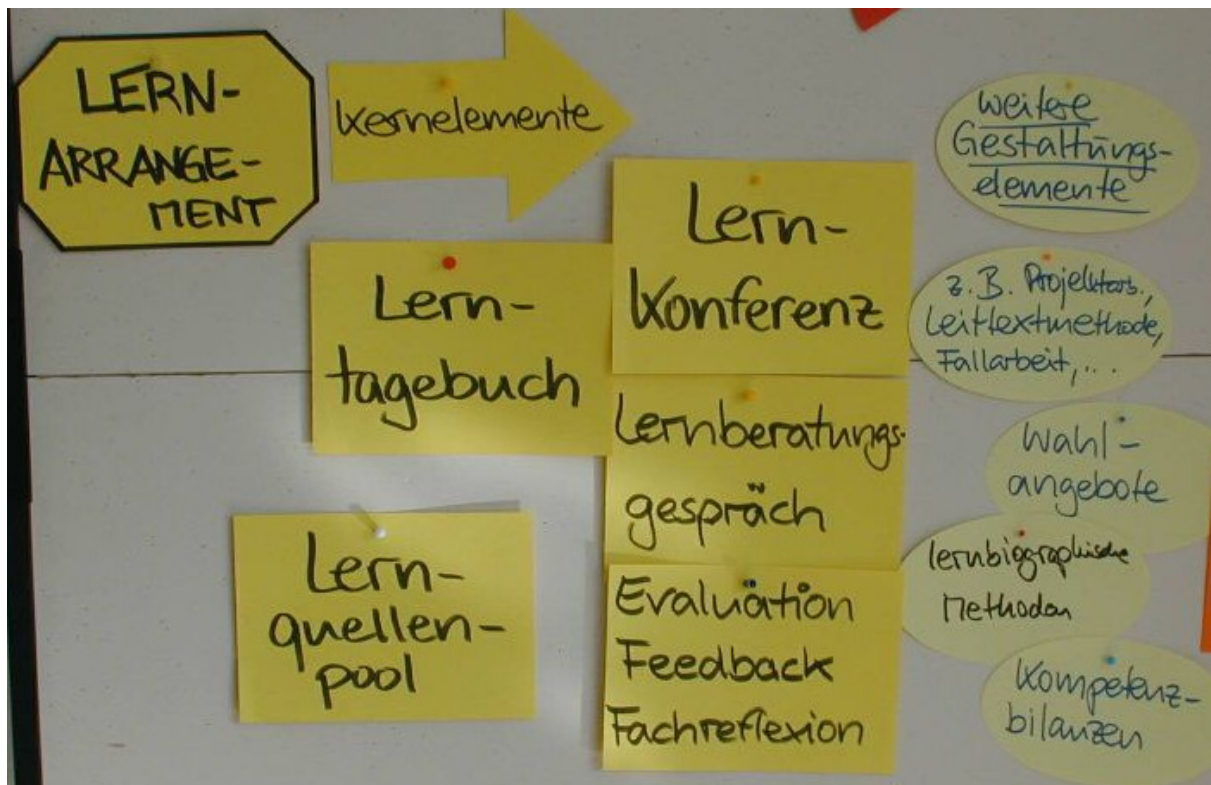 LERN-
ARRANGE-
MENT
Kernelemente
Lern-
tagebuch
Lern-
quellen-
pool
Lern-
Konferenz
Lernberatungs-
gespräch
Evaluation
Feedback
Fachreflexion
weitere
Gestaltungs-
elemente
z.B. Projektarb.,
Leittextmethode,
Fallarbeit,...
Wahl-
angebote
lernbiographische
Methoden
Kompetenz-
bilanzen